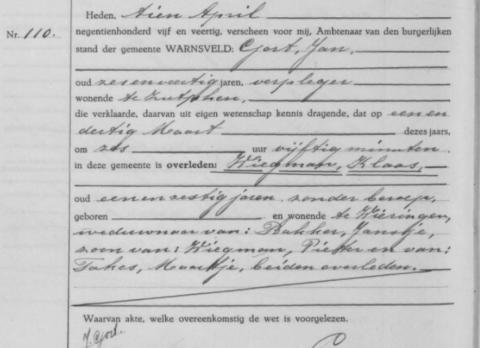 Heden, tien April
Nr. 110.
negentienhonderd vijf en veertig, verscheen voor mij, Ambtenaar van den burgerlijken
stand der gemeente WARNSVELD: Gort, Jan,
oud zesenveertig jaren, verpleger
wonende te Zutphen,
die verklaarde, daarvan uit eigen wetenschap kennis dragende, dat op eenen
dertig Maart dezes jaars,
om zes uur vijftig minuten
in deze gemeente is overleden: Wiegman, Klaas,
oud eenenzestig jaren zonder beroep,
geboren en wonende te Wieringen,
weduwnaar van: Bakker, Jansje,
zoon van: Wiegman, Pieter en van:
Takes, Maartje, beiden overleden.
Waarvan akte, welke overeenkomstig de wet is voorgelezen.
J. Gort.